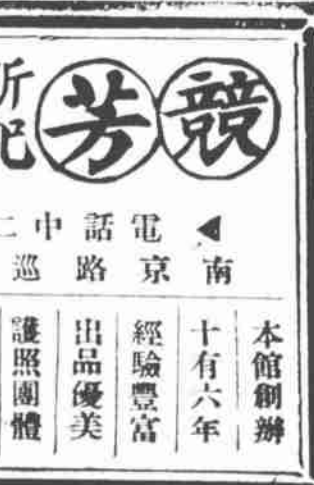 競芳
電話中二
南京路巡
本館創辦
十有六年
經驗豐富
出品優美
護照團體